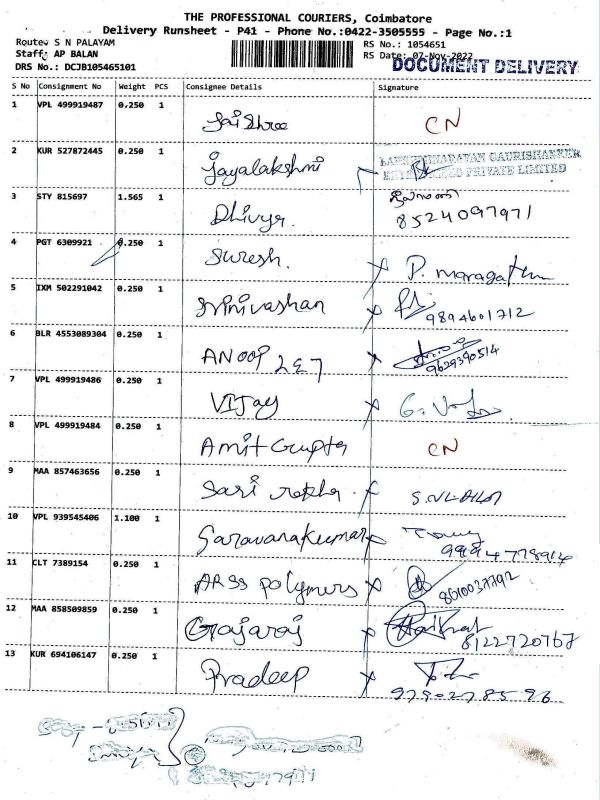 THE PROFESSIONAL COURIERS, Coimbatore
Delivery Runsheet - P41 - Phone No.:0422-3505555 - Page No.:1
Route: S N PALAYAM
Staff: AP BALAN
DRS No.: DCJB105465101
RS No.: 1054651
RS Date: 07-Nov-2022
DOCUMENT DELIVERY
S No Consignment No Weight PCS Consignee Details Signature
1 VPL 499919487 0.250 1 Jai Shree CN
2 KUR 527872445 0.250 1 Jayalakshmi
PRIVATE LIMITED
3 STY 815697 1.565 1 Dhivya 8524097971
4 PGT 6309921 0.250 1 Suresh. x P. maragatham
5 IXM 502291042 0.250 1 Srinivashan x 9894601712
6 BLR 4553089304 0.250 1 ANOOP 2&7 x 9629390514
7 VPL 499919486 0.250 1 VIJay x
8 VPL 499919484 0.250 1 Amit Gupta CN
9 MAA 857463656 0.250 1 Sasi rekha. x
10 VPL 939545406 1.100 1 Saravanakumar x
11 CLT 7389154 0.250 1 ARSS polymers x
12 MAA 858509859 0.250 1 Gajaraj x 8122720767
13 KUR 694106147 0.250 1 Pradeep x